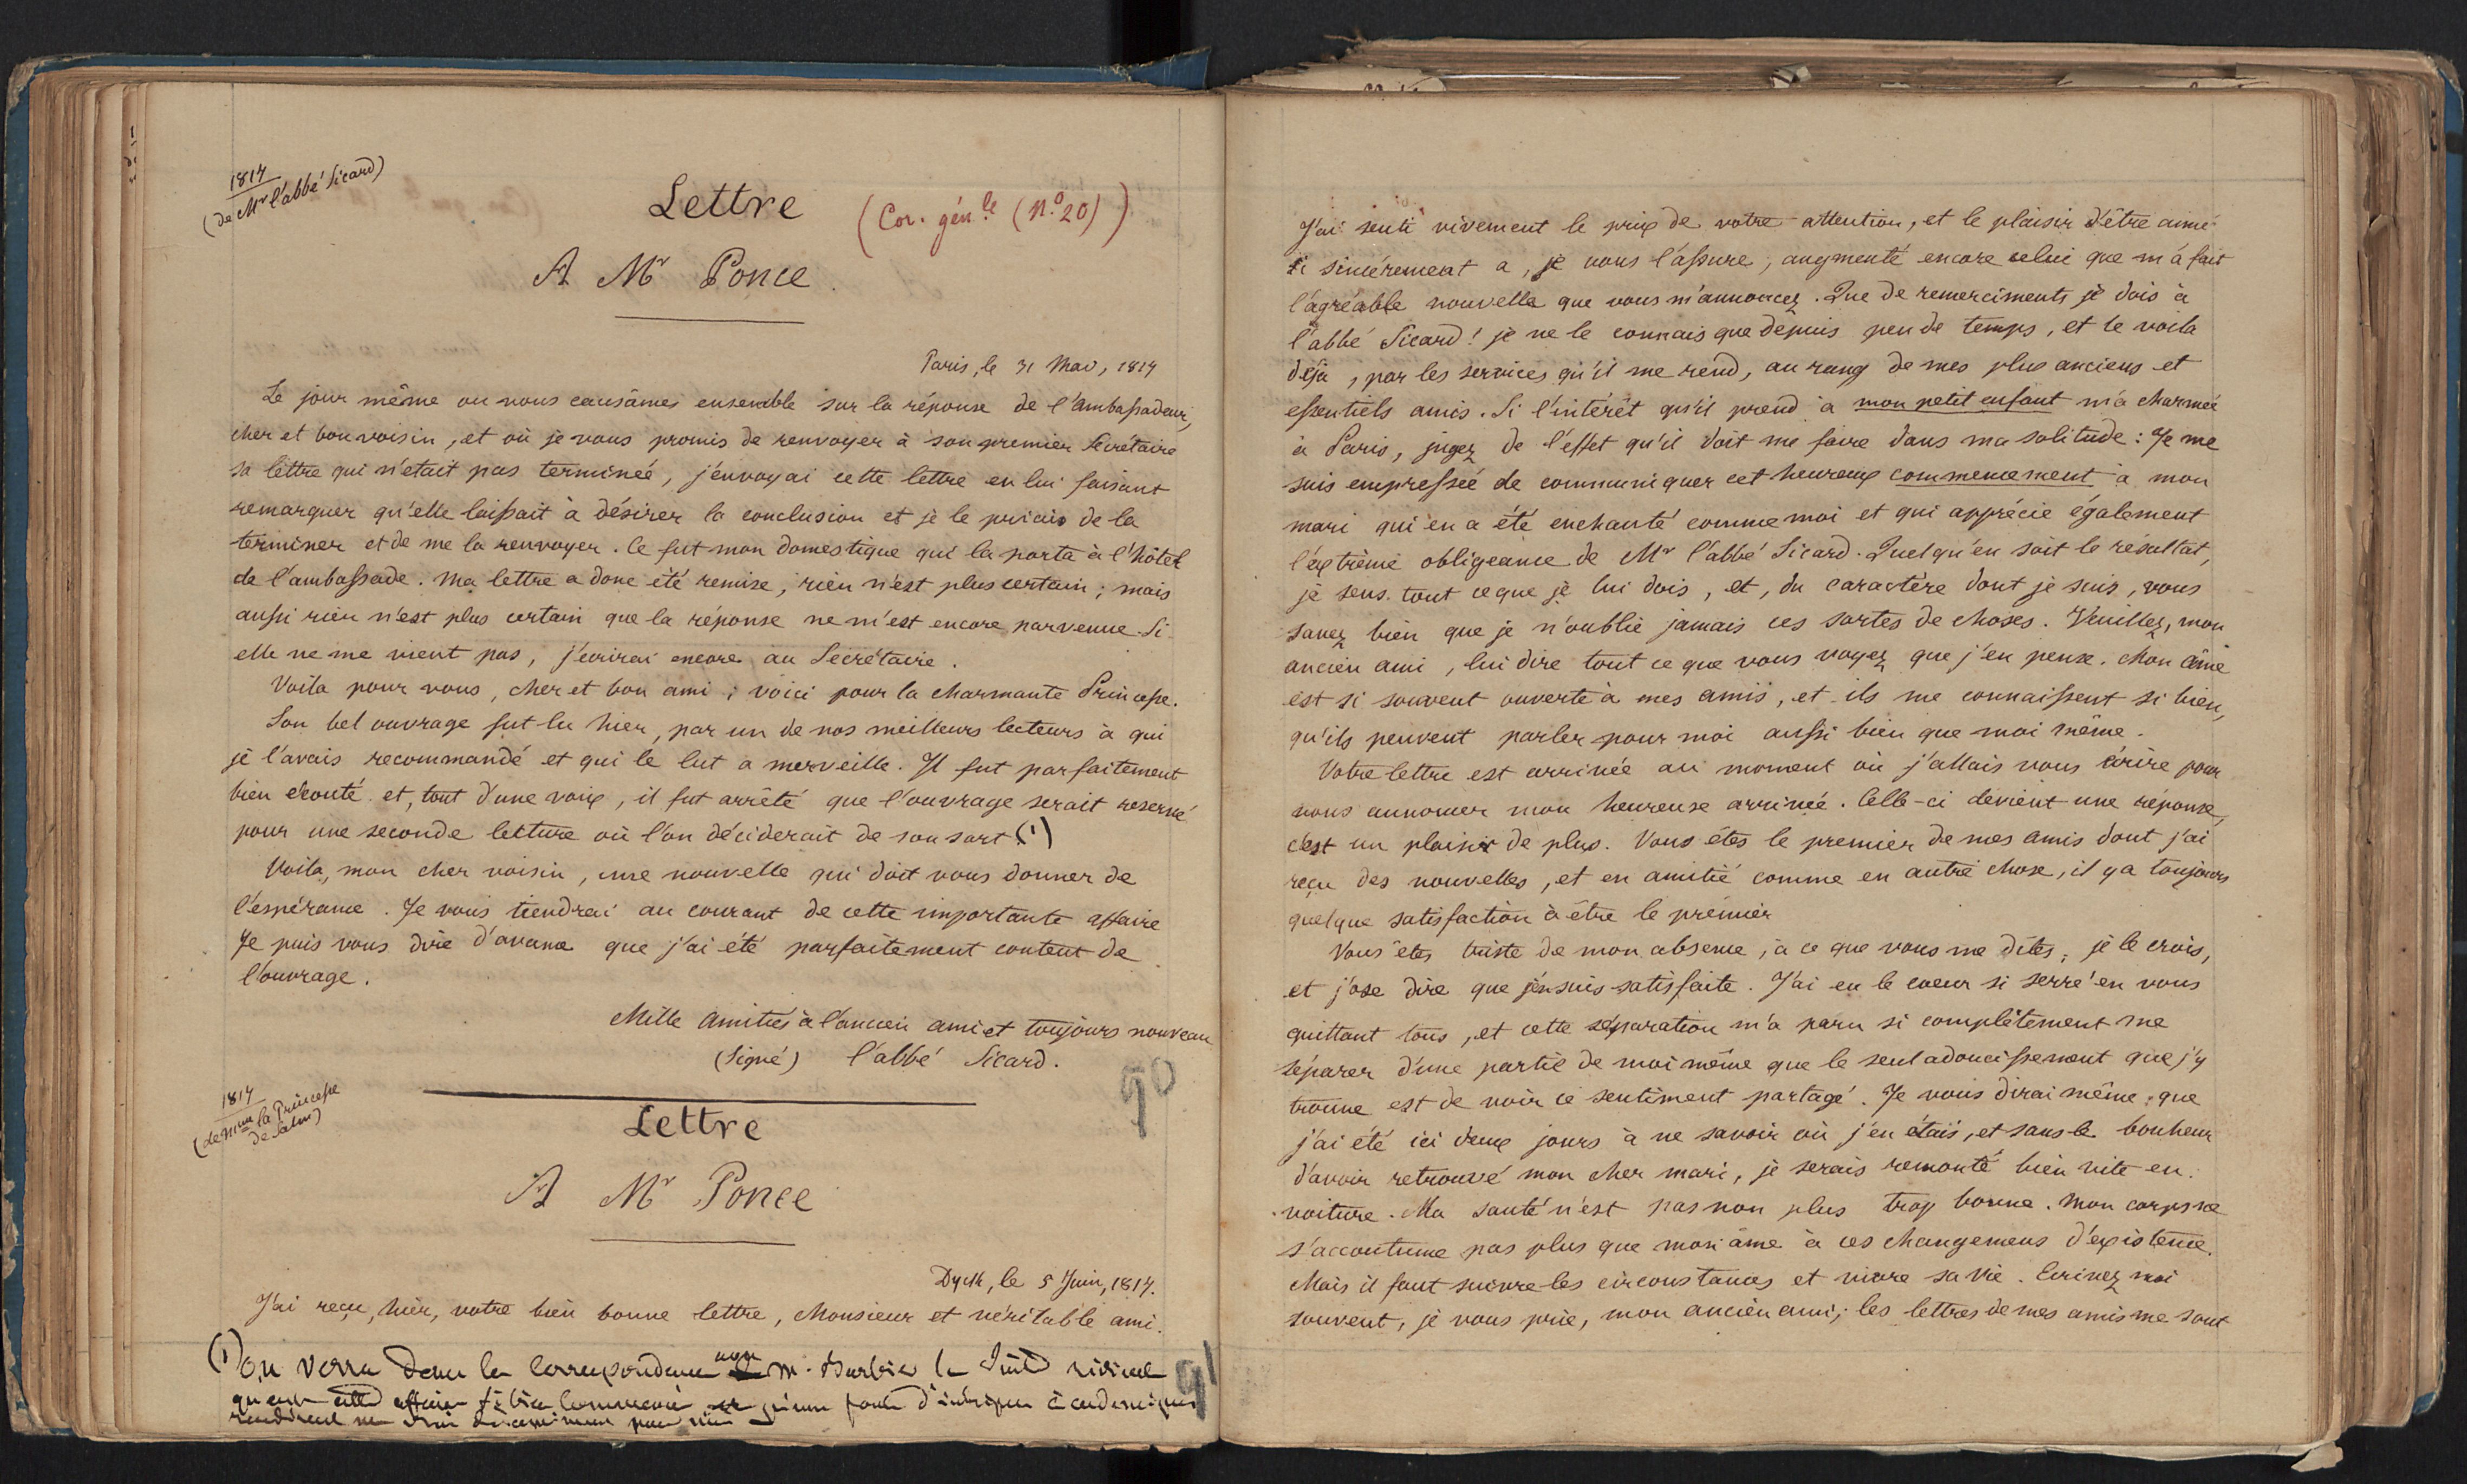 1814
(de Mr l'abbé Sicard)
Lettre
(Cor. génle (n.o 20))
A Mr Ponce.
Paris, le 31 Mai, 1814
Le jour même ou nous causâmes ensemble sur la réponse de l'Ambassadeur,
cher et bon voisin, et où je vous promis de renvoyer à son premier Secrétaire
sa lettre qui n'était pas terminée, j'envoyai cette lettre en lui faisant
remarquer qu'elle laissait à désirer la conclusion et je le priais de la
terminer et de me la renvoyer. Ce fut mon domestique qui la porta à l'hôtel
de l'ambassade. Ma lettre a donc été remise, rien n'est plus certain; mais
aussi rien n'est plus certain que la réponse ne m'est encore parvenue. Si
elle ne me vient pas, j'écrirai encore au Secrétaire.
Voila pour vous, cher et bon ami; voici pour la charmante Princesse.
Son bel ouvrage fut lu hier, par un de nos meilleurs lecteurs à qui
je l'avais recommandé et qui le lut a merveille. Il fut parfaitement
bien écouté et, tout d'une voix, il fut arrêté que l'ouvrage serait reservé
pour une seconde lecture où l'on déciderait de son sort (1)
Voila, mon cher voisin, une nouvelle qui doit vous donner de
l'espérance. Je vous tiendrai au courant de cette importante affaire
Je puis vous dire d'avance que j'ai été parfaitement content de
l'ouvrage.
Mille amitiés à l'ancien ami et toujours nouveau
(Signé) l'abbé Sicard.
90
1814
(de Mme la Princesse
de Salm)
Lettre
A Mr Ponce
Dyck, le 5 Juin, 1814.
J'ai reçu, hier, votre bien bonne lettre, Monsieur et véritable ami.
(1) on verra dans la Correspondance avec M. Barbier la suite ridicule
qu'eut cette affaire si bien commencée et qu'une foule d'intrigues académiques
91
J'ai senti vivement le prix de votre attention, et le plaisir d'être aimé
si sincérement a, je vous l'assure, augmenté encore celui que m'a fait
l'agréable nouvelle que vous m'annoncez. Que de remerciments je dois à
l'abbé Sicard! je ne le connais que depuis peu de temps, et le voila
déja, par les services qu'il me rend, au rang de mes plus anciens et
essentiels amis. Si l'intérêt qu'il prend à mon petit enfant m'a charmée
à Paris, jugez de l'effet qu'il doit me faire dans ma solitude: Je me
suis empressée de communiquer cet heureux commencement à mon
mari qui en a été enchanté comme moi et qui apprécie également
l'extrême obligeance de Mr l'abbé Sicard. Quelqu'en soit le résultat,
je sens tout ce que je lui dois, et, du caractère dont je suis, vous
savez bien que je n'oublie jamais ces sortes de choses. Veuillez, mon
ancien ami, lui dire tout ce que vous voyez que j'en pense. Mon âme
est si souvent ouverte à mes amis, et ils me connaissent si bien,
qu'ils peuvent parler pour moi aussi bien que moi même.
Votre lettre est arrivée au moment où j'allais vous écrire pour
vous annoncer mon heureuse arrivée. Celle-ci devient une réponse,
c'est un plaisir de plus. Vous êtes le premier de mes amis dont j'ai
reçu des nouvelles, et en amitié comme en autre chose, il y a toujours
quelque satisfaction à être le premier
Vous êtes triste de mon absence, à ce que vous me dites; je le crois,
et j'ose dire que j'en suis satisfaite. J'ai eu le coeur si serré en vous
quittant tous, et cette séparation m'a paru si complètement me
séparer d'une partie de moi même que le seul adoucissement que j'y
trouve est de voir ce sentiment partagé. Je vous dirai même que
j'ai été ici deux jours à ne savoir où j'en étais, et sans le bonheur
d'avoir retrouvé mon cher mari, je serais remonté bien vite en
voiture. Ma santé n'est pas non plus trop bonne. Mon corps ne
s'accoutume pas plus que mon âme à ces changemens d'existence.
Mais il faut suivre les circonstances et vivre sa vie. Ecrivez moi
souvent, je vous prie, mon ancien ami; les lettres de mes amis me sont